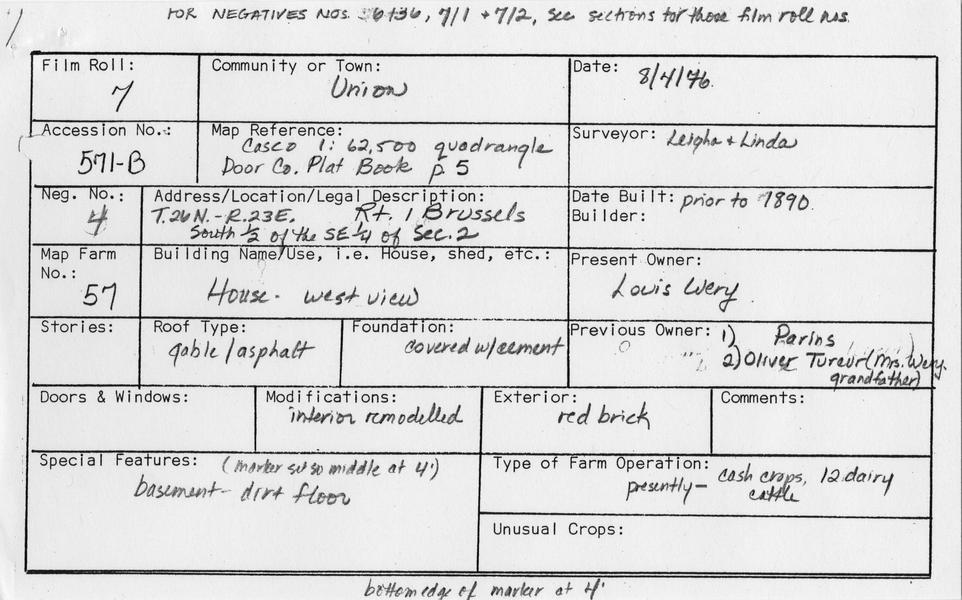 FOR NEGATIVES NOS. 6/36, 7/1 + 7/2, see sections for those film roll nos.
Film Roll: 7
Community or Town: Union
Date: 8/4/76
Accession No.: 571-B
Map Reference: Casco 1: 62,500 quadrangle
Door Co. Plat Book p. 5
Surveyor: Leigha + Linda
Neg. No.: 4
Address/Location/Legal Description:
T.26N.-R.23E. Rt. 1 Brussels
South 1/2 of the SE 1/4 of Sec. 2
Date Built: prior to 1890
Builder:
Map Farm No.: 57
Building Name/Use, i.e. House, shed, etc.:
House - west view
Present Owner:
Louis Wery
Stories:
Roof Type:
gable/asphalt
Foundation:
covered w/cement
Previous Owner: 1) Parins
2) Oliver Tureur (Mrs. Wery
grandfather)
Doors & Windows:
Modifications:
interior remodelled
Exterior:
red brick
Comments:
Special Features: (marker middle at 4')
basement - dirt floor
Type of Farm Operation:
presently - cash crops, 12 dairy
cattle
Unusual Crops:
bottom edge of marker at 4'